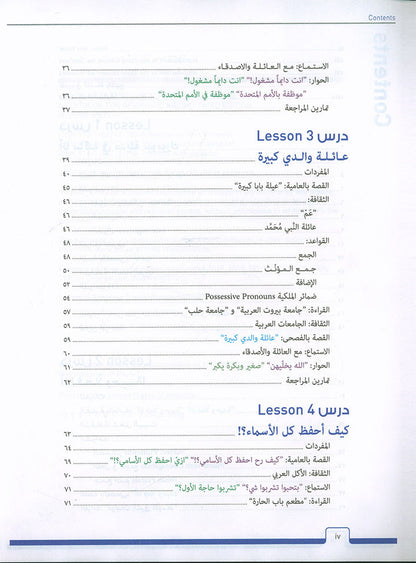 Contents
الاستماع: مع العائلة والاصدقاء ٣٦
الحوار: "انت دايماً مشغول!" "انت دايماً مشغول!"
"موظفة بالأمم المتحدة" "موظفة في الأمم المتحدة" ٣٦
تمارين المراجعة ٣٧
درس 3 Lesson
عائلة والدي كبيرة ٣٩
المفردات ٤٠
القصة بالعامية: "عيلة بابا كبيرة" ٤٥
الثقافة:
"عَمّ" ٤٦
عائلة النَّبي مُحَمَّد ٤٦
القواعد: ٤٨
الجمع ٤٨
جمع المؤنّث ٥٠
الإضافة ٥٢
ضمائر الملكية Possessive Pronouns ٥٤
القراءة: "جامعة بيروت العربية" و "جامعة حلب" ٥٧
الثقافة: الجامعات العربية ٥٩
القصة بالفصحى: "عائلة والدي كبيرة" ٥٩
الاستماع: مع العائلة والأصدقاء ٦٠
الحوار: "الله يخلّيهن" "صغير وبكرة يكبر" ٦١
تمارين المراجعة ٦٢
درس 4 Lesson
كيف أحفظ كل الأسماء؟! ٦٣
المفردات ٦٤
القصة بالعامية: "كيف رح احفظ كل الأسامي؟!" "ازيّ احفظ كل الأسامي؟!" ٦٩
الثقافة: الأكل العربي ٧٠
الاستماع: "بتحبوا تشربوا شي؟" "تشربوا حاجة الأول؟" ٧١
القراءة: "مطعم باب الحارة" ٧١
iv